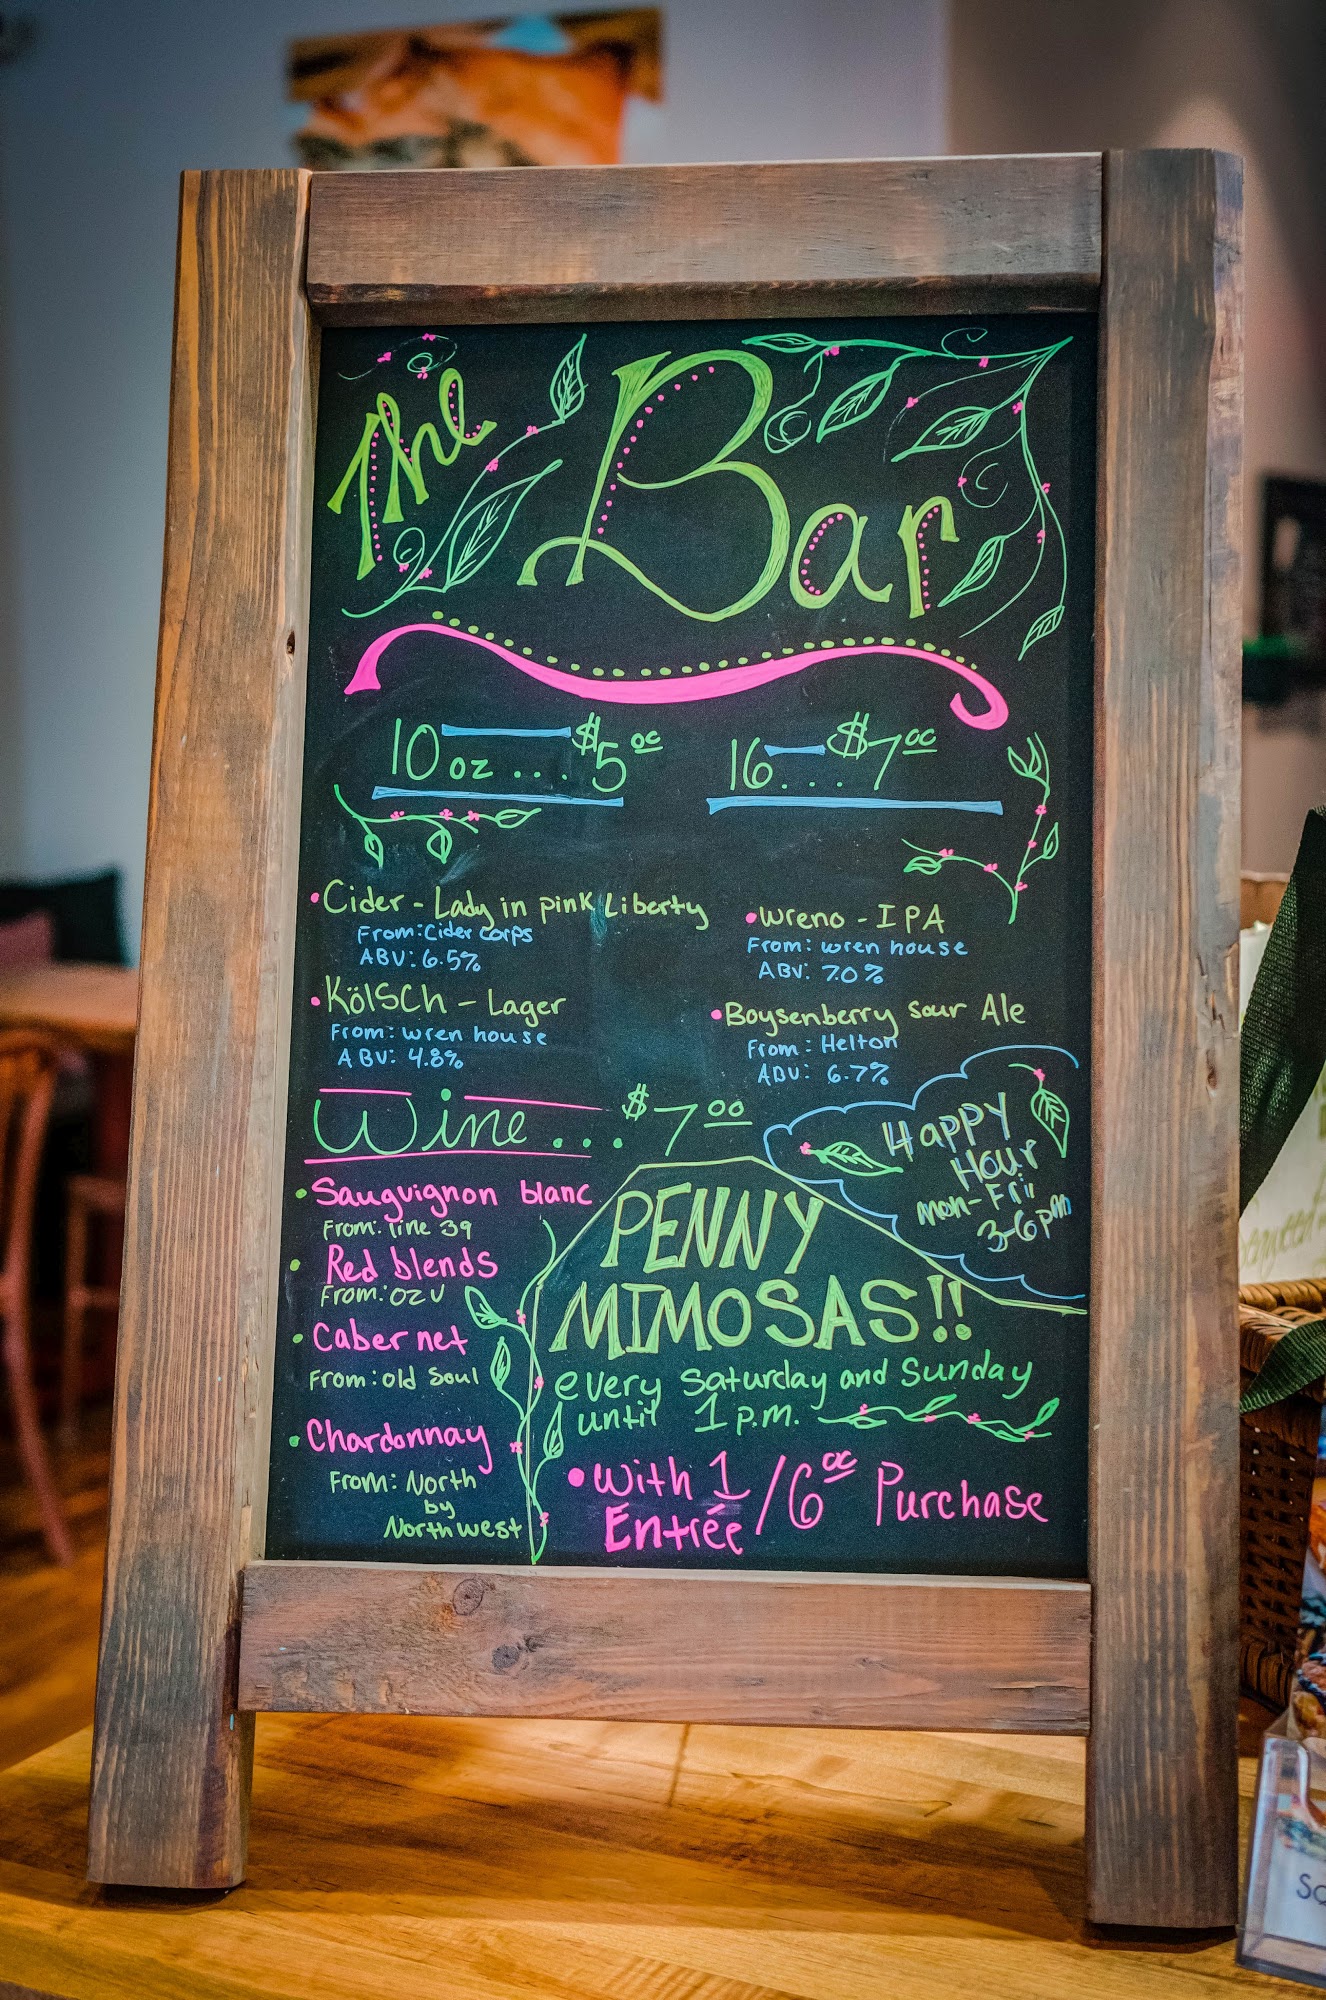 The Bar
10 oz ... $5 00
16 ... $7 00
• Cider - Lady in pink Liberty
From: Cider corps
ABV: 6.5%
• Kölsch - Lager
From: wren house
ABV: 4.8%
• Wreno - IPA
From: wren house
ABV: 7.0%
• Boysenberry sour Ale
From: Helton
ABV: 6.7%
Wine ... $7 00
• Sauguvignon blanc
From: line 39
• Red blends
From: OZV
• Cabernet
From: old Soul
• Chardonnay
From: North
by
Northwest
Happy
Hour
mon-Fri
3-6pm
PENNY
MIMOSAS!!
every Saturday and Sunday
until 1 p.m.
• with 1 / 6 00 Purchase
Entrée